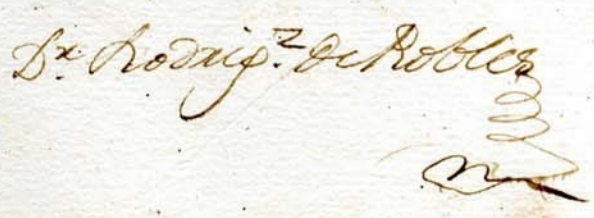 Dr. Rodrig.z de Robles